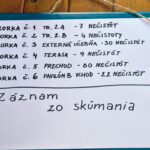 ZORKA č. 1 TR. 2.A - 7 NEČISTÔT
ZORKA č. 2 TR. 2.B - 4 NEČISTOTY
ZORKA č. 3 EXTERNÁ UČEBŇA - 30 NEČISTÔT
ZORKA č. 4 TERASA - 9 NEČISTÔT
ZORKA č. 5 PRECHOD - 80 NEČISTÔT
ZORKA č. 6 PAVILÓN B, VCHOD - 22 NEČISTÔT
Záznam
zo skúmania